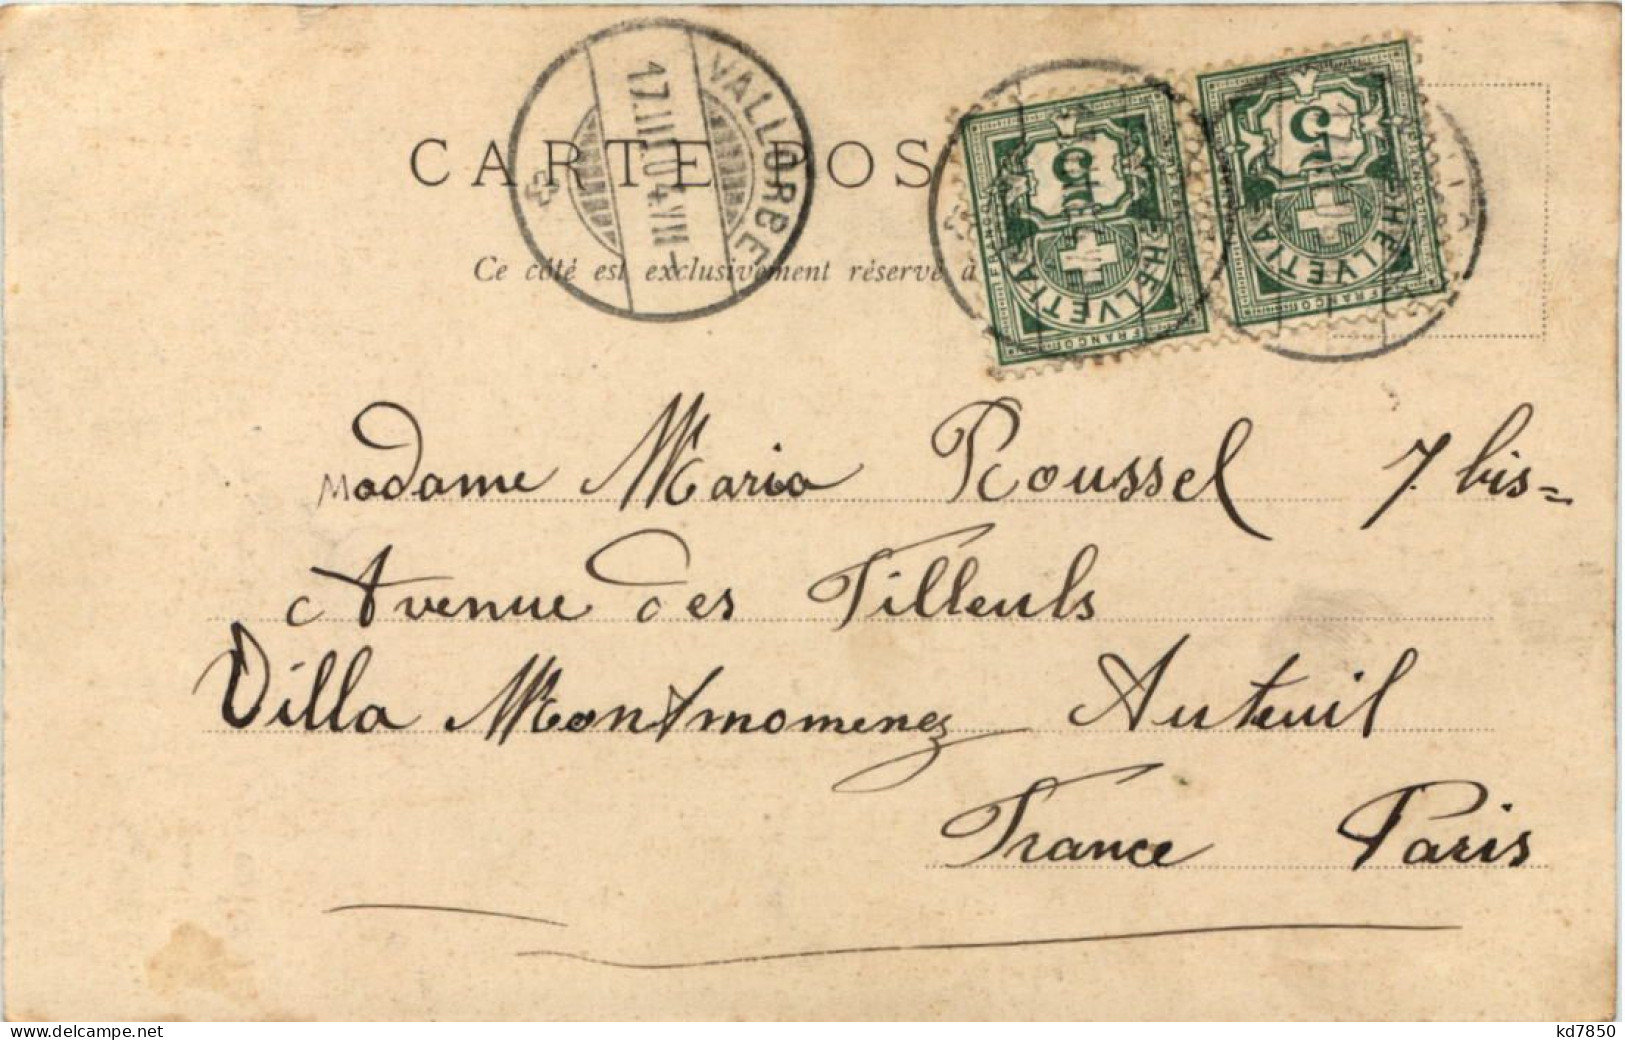 VALLORBE
17.III.04.VII
CARTE POS
Ce côté est exclusivement réservé à
5
HELVETIA
FRANCO
5
HELVETIA
FRANCO
Madame Maria Roussel 7. bis=
Avenue des Tilleuls
Villa Montmomenez Auteuil
France Paris
www.delcampe.net
kd7850